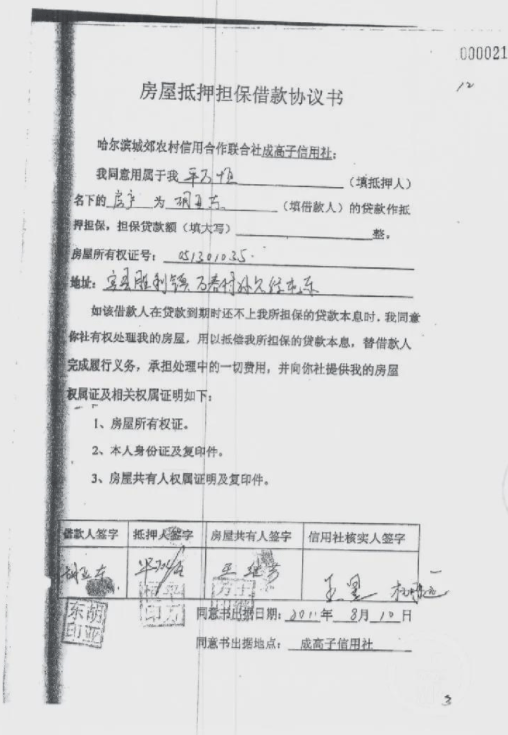 000021
12
房屋抵押担保借款协议书
哈尔滨城郊农村信用合作联合社成高子信用社：
我同意用属于我（填抵押人）
名下的房产为胡亚东（填借款人）的贷款作抵
押担保，担保贷款额（填大写）整。
房屋所有权证号：051301035
地址：宾县胜利镇万春村
如该借款人在贷款到期时还不上我所担保的贷款本息时，我同意
你社有权处理我的房屋，用以抵偿我所担保的贷款本息，替借款人
完成履行义务，承担处理中的一切费用，并向你社提供我的房屋
权属证及相关权属证明如下：
1、房屋所有权证。
2、本人身份证及复印件。
3、房屋共有人权属证明及复印件。
借款人签字 抵押人签字 房屋共有人签字 信用社核实人签字
胡亚东 王星
胡亚东印
同意书出据日期：2011年8月10日
同意书出据地点：成高子信用社
3